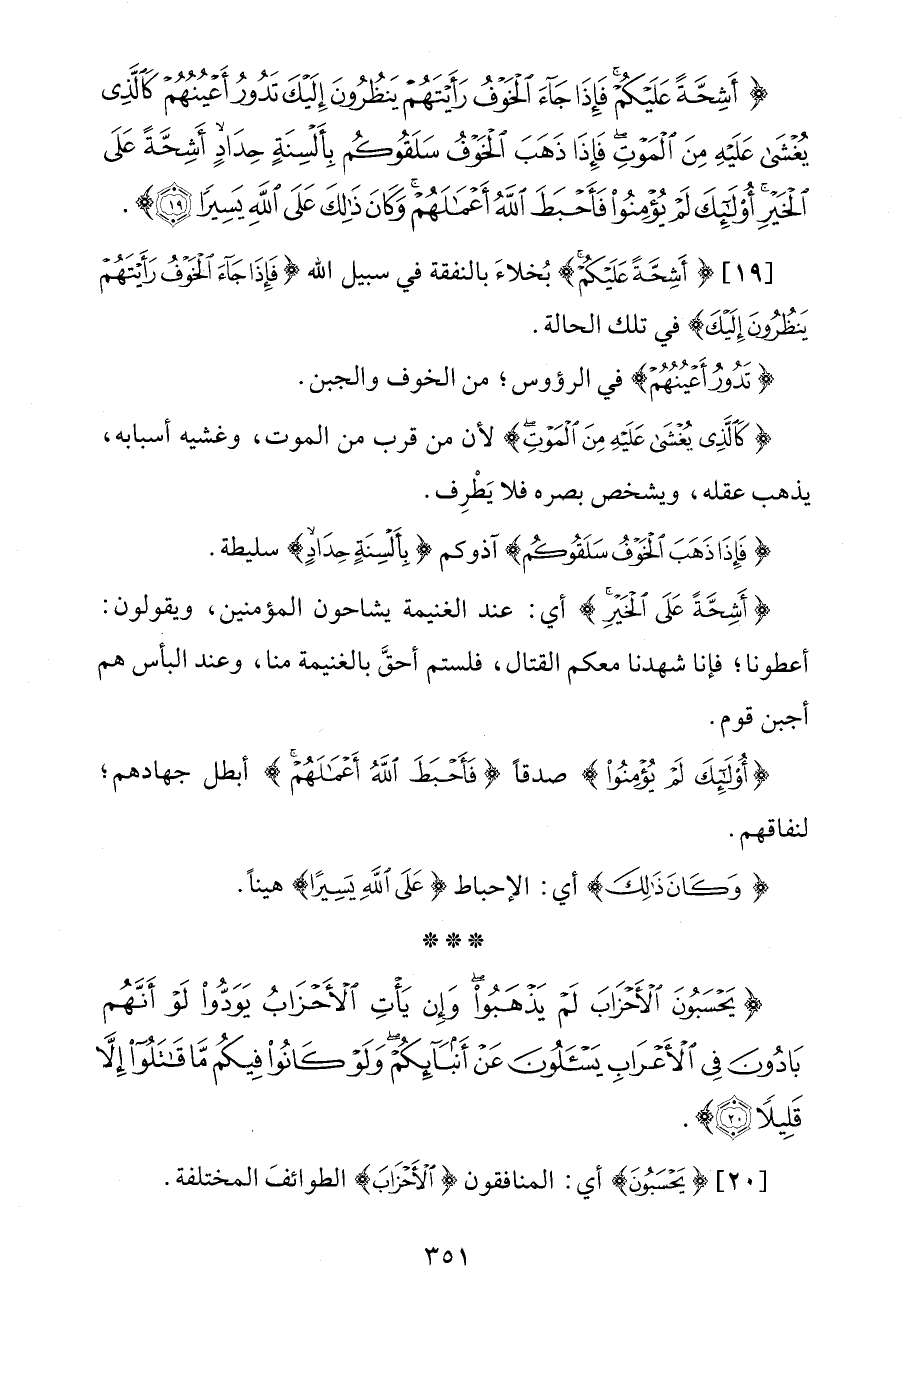 ﴿ أَشِحَّةً عَلَيْكُمْ ۖ فَإِذَا جَآءَ ٱلْخَوْفُ رَأَيْتَهُمْ يَنظُرُونَ إِلَيْكَ تَدُورُ أَعْيُنُهُمْ كَٱلَّذِى
يُغْشَىٰ عَلَيْهِ مِنَ ٱلْمَوْتِ ۖ فَإِذَا ذَهَبَ ٱلْخَوْفُ سَلَقُوكُم بِأَلْسِنَةٍ حِدَادٍ أَشِحَّةً عَلَى
ٱلْخَيْرِ ۚ أُو۟لَٰٓئِكَ لَمْ يُؤْمِنُوا۟ فَأَحْبَطَ ٱللَّهُ أَعْمَٰلَهُمْ ۚ وَكَانَ ذَٰلِكَ عَلَى ٱللَّهِ يَسِيرًا ١٩ ﴾ .
[١٩] ﴿ أَشِحَّةً عَلَيْكُمْ ۖ ﴾ بُخلاءَ بالنفقة في سبيل الله ﴿ فَإِذَا جَآءَ ٱلْخَوْفُ رَأَيْتَهُمْ
يَنظُرُونَ إِلَيْكَ ﴾ في تلك الحالة .
﴿ تَدُورُ أَعْيُنُهُمْ ﴾ في الرؤوس ؛ من الخوف والجبن .
﴿ كَٱلَّذِى يُغْشَىٰ عَلَيْهِ مِنَ ٱلْمَوْتِ ۖ ﴾ لأن من قرب من الموت ، وغشيه أسبابه ،
يذهب عقله ، ويشخص بصره فلا يَطْرِف .
﴿ فَإِذَا ذَهَبَ ٱلْخَوْفُ سَلَقُوكُم ﴾ آذوكم ﴿ بِأَلْسِنَةٍ حِدَادٍ ﴾ سليطة .
﴿ أَشِحَّةً عَلَى ٱلْخَيْرِ ۚ ﴾ أي : عند الغنيمة يشاحون المؤمنين ، ويقولون :
أعطونا ؛ فإنا شهدنا معكم القتال ، فلستم أحقَّ بالغنيمة منا ، وعند البأس هم
أجبن قوم .
﴿ أُو۟لَٰٓئِكَ لَمْ يُؤْمِنُوا۟ ﴾ صدقاً ﴿ فَأَحْبَطَ ٱللَّهُ أَعْمَٰلَهُمْ ۚ ﴾ أبطل جهادهم ؛
لنفاقهم .
﴿ وَكَانَ ذَٰلِكَ ﴾ أي : الإحباط ﴿ عَلَى ٱللَّهِ يَسِيرًا ﴾ هيناً .
* * *
﴿ يَحْسَبُونَ ٱلْأَحْزَابَ لَمْ يَذْهَبُوا۟ ۖ وَإِن يَأْتِ ٱلْأَحْزَابُ يَوَدُّوا۟ لَوْ أَنَّهُم
بَادُونَ فِى ٱلْأَعْرَابِ يَسْـَٔلُونَ عَنْ أَنۢبَآئِكُمْ ۖ وَلَوْ كَانُوا۟ فِيكُم مَّا قَٰتَلُوٓا۟ إِلَّا
قَلِيلًا ٢٠ ﴾ .
[٢٠] ﴿ يَحْسَبُونَ ﴾ أي : المنافقون ﴿ ٱلْأَحْزَابَ ﴾ الطوائفَ المختلفة .
٣٥١